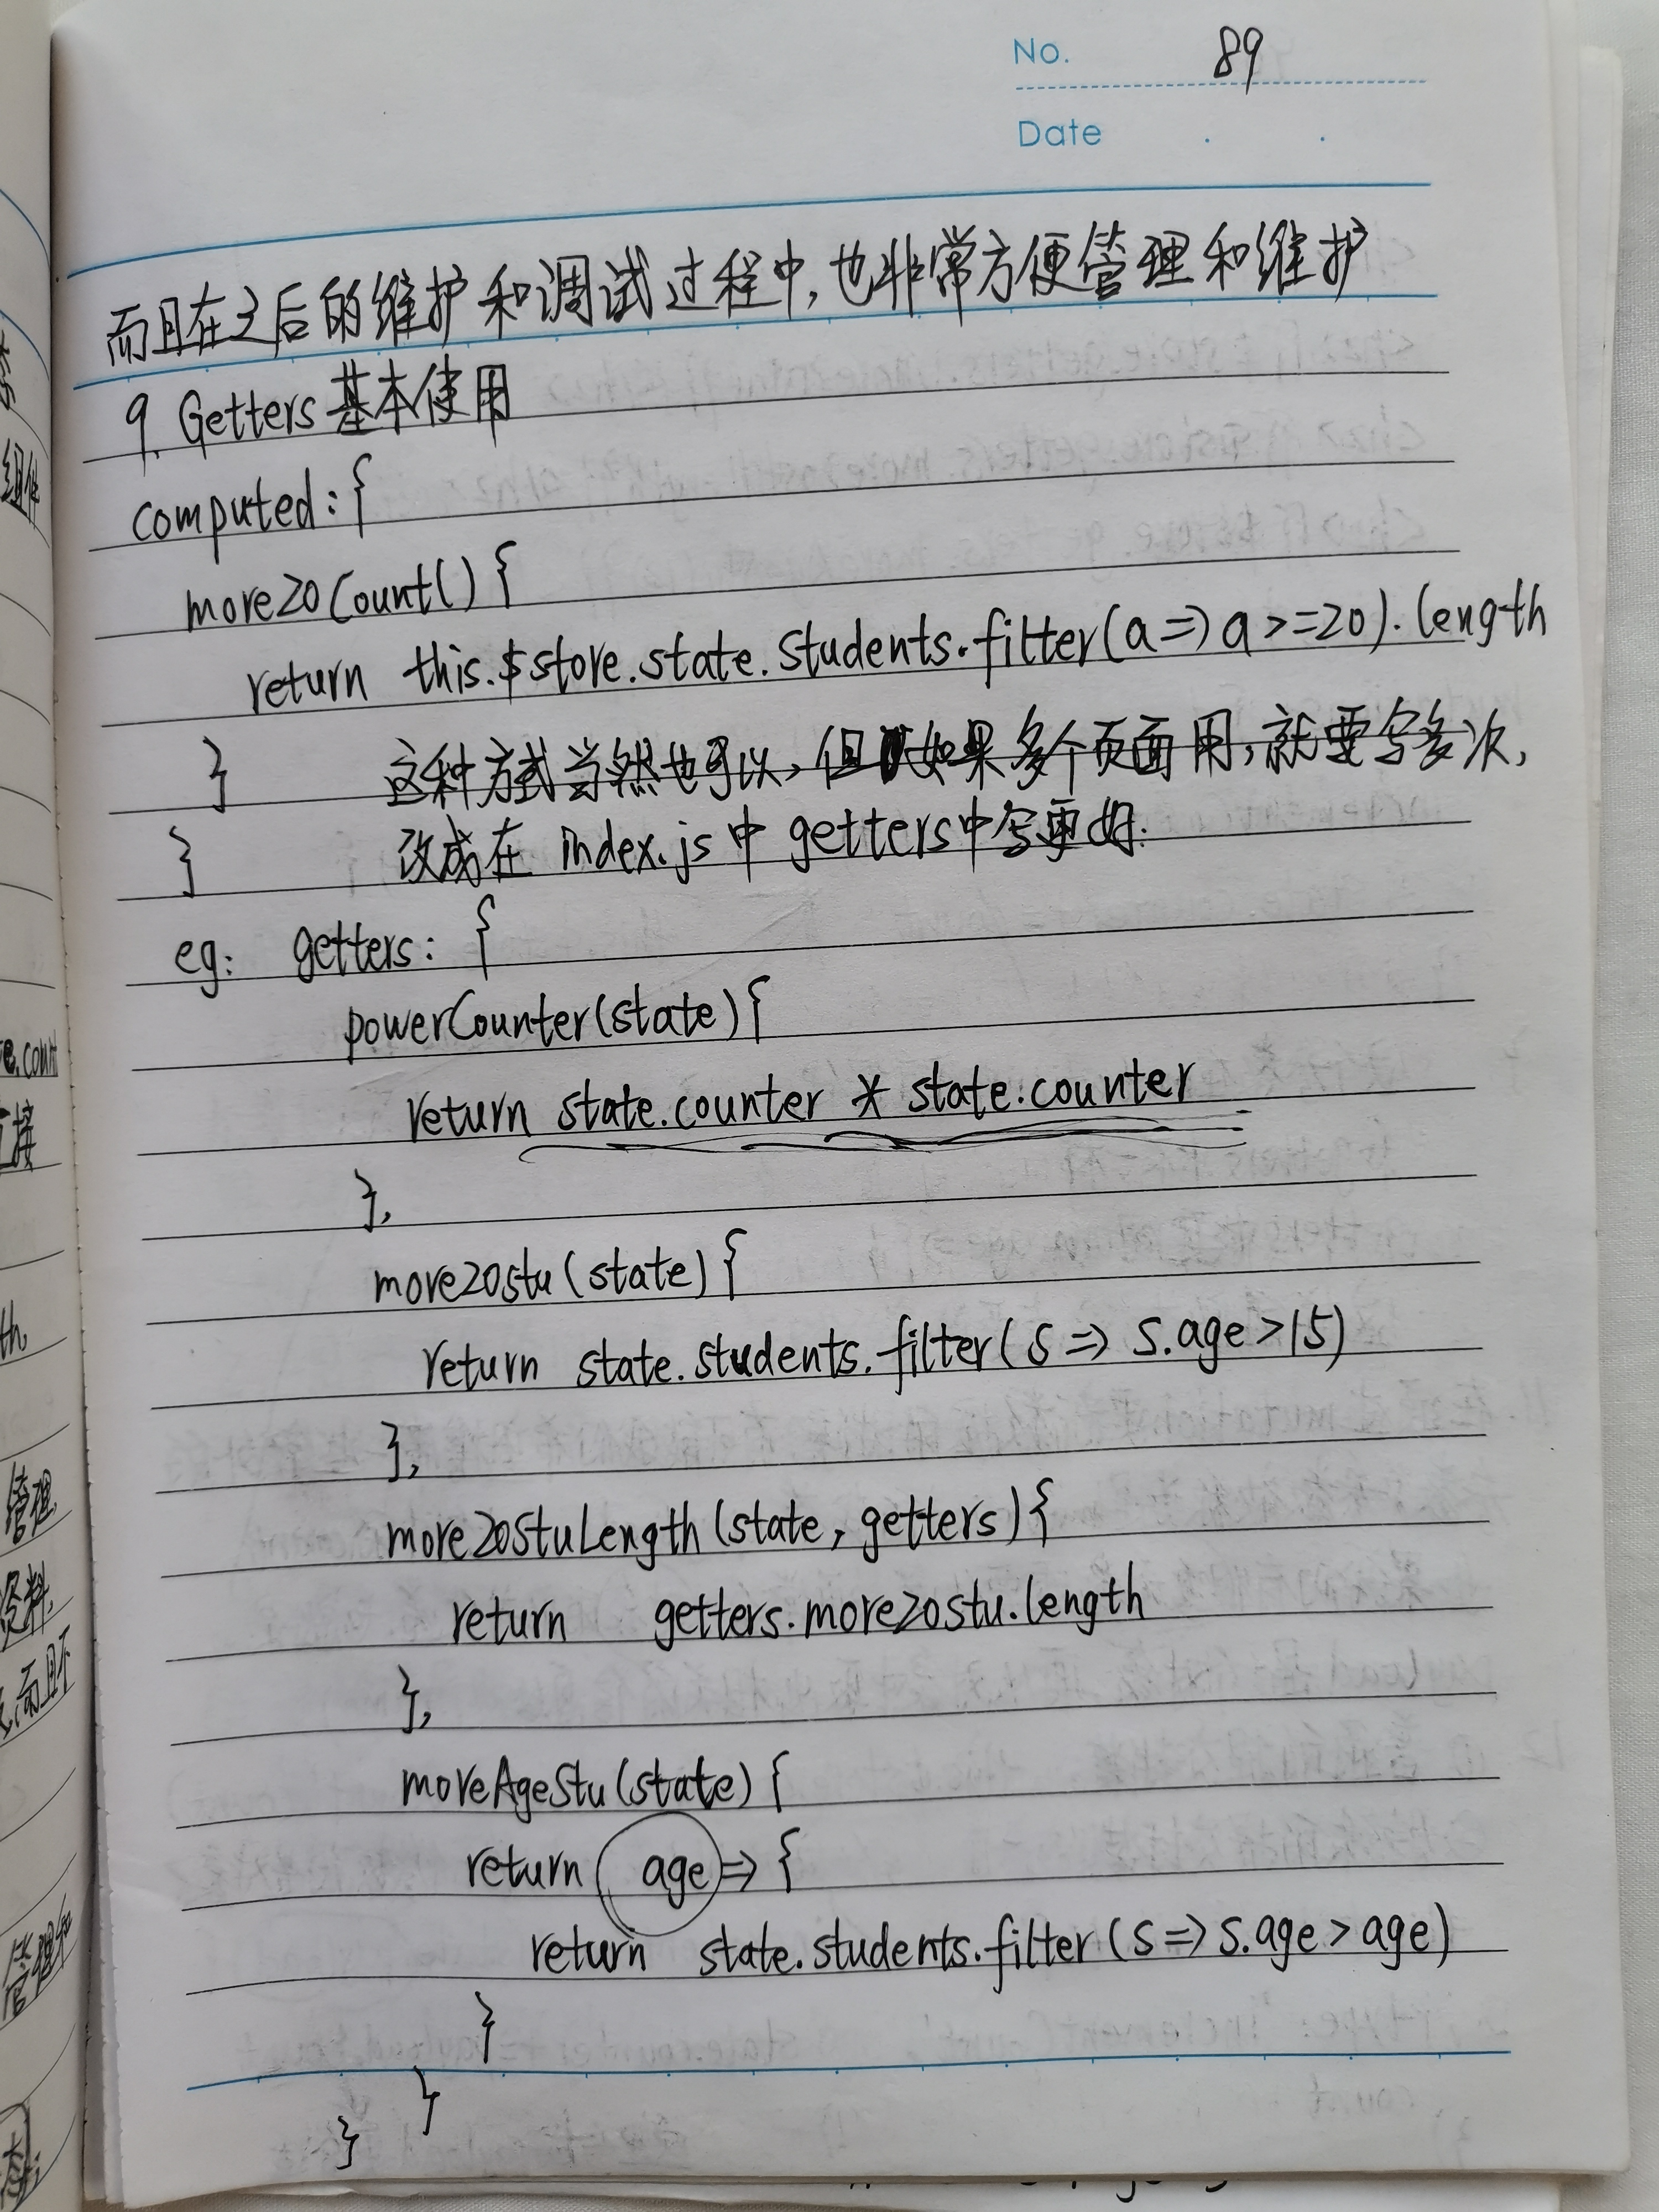 No. 89
Date
而且在之后的维护和调试过程中,也非常方便管理和维护
9. Getters基本使用
computed:{
more20Count(){
return this.$store.state.students.filter(a=>a>=20).length
} 这种方式当然也可以,但如果多个页面用,就要写多次,
} 改成在index.js中getters中写更好.
eg: getters: {
powerCounter(state){
return state.counter * state.counter
},
more20stu(state){
return state.students.filter(s=>s.age>15)
},
more20stuLength(state,getters){
return getters.more20stu.length
},
moreAgeStu(state){
return age=>{
return state.students.filter(s=>s.age>age)
}
}
}
组件
e.count
接
th,
管理
资料,
,而且不
管理和